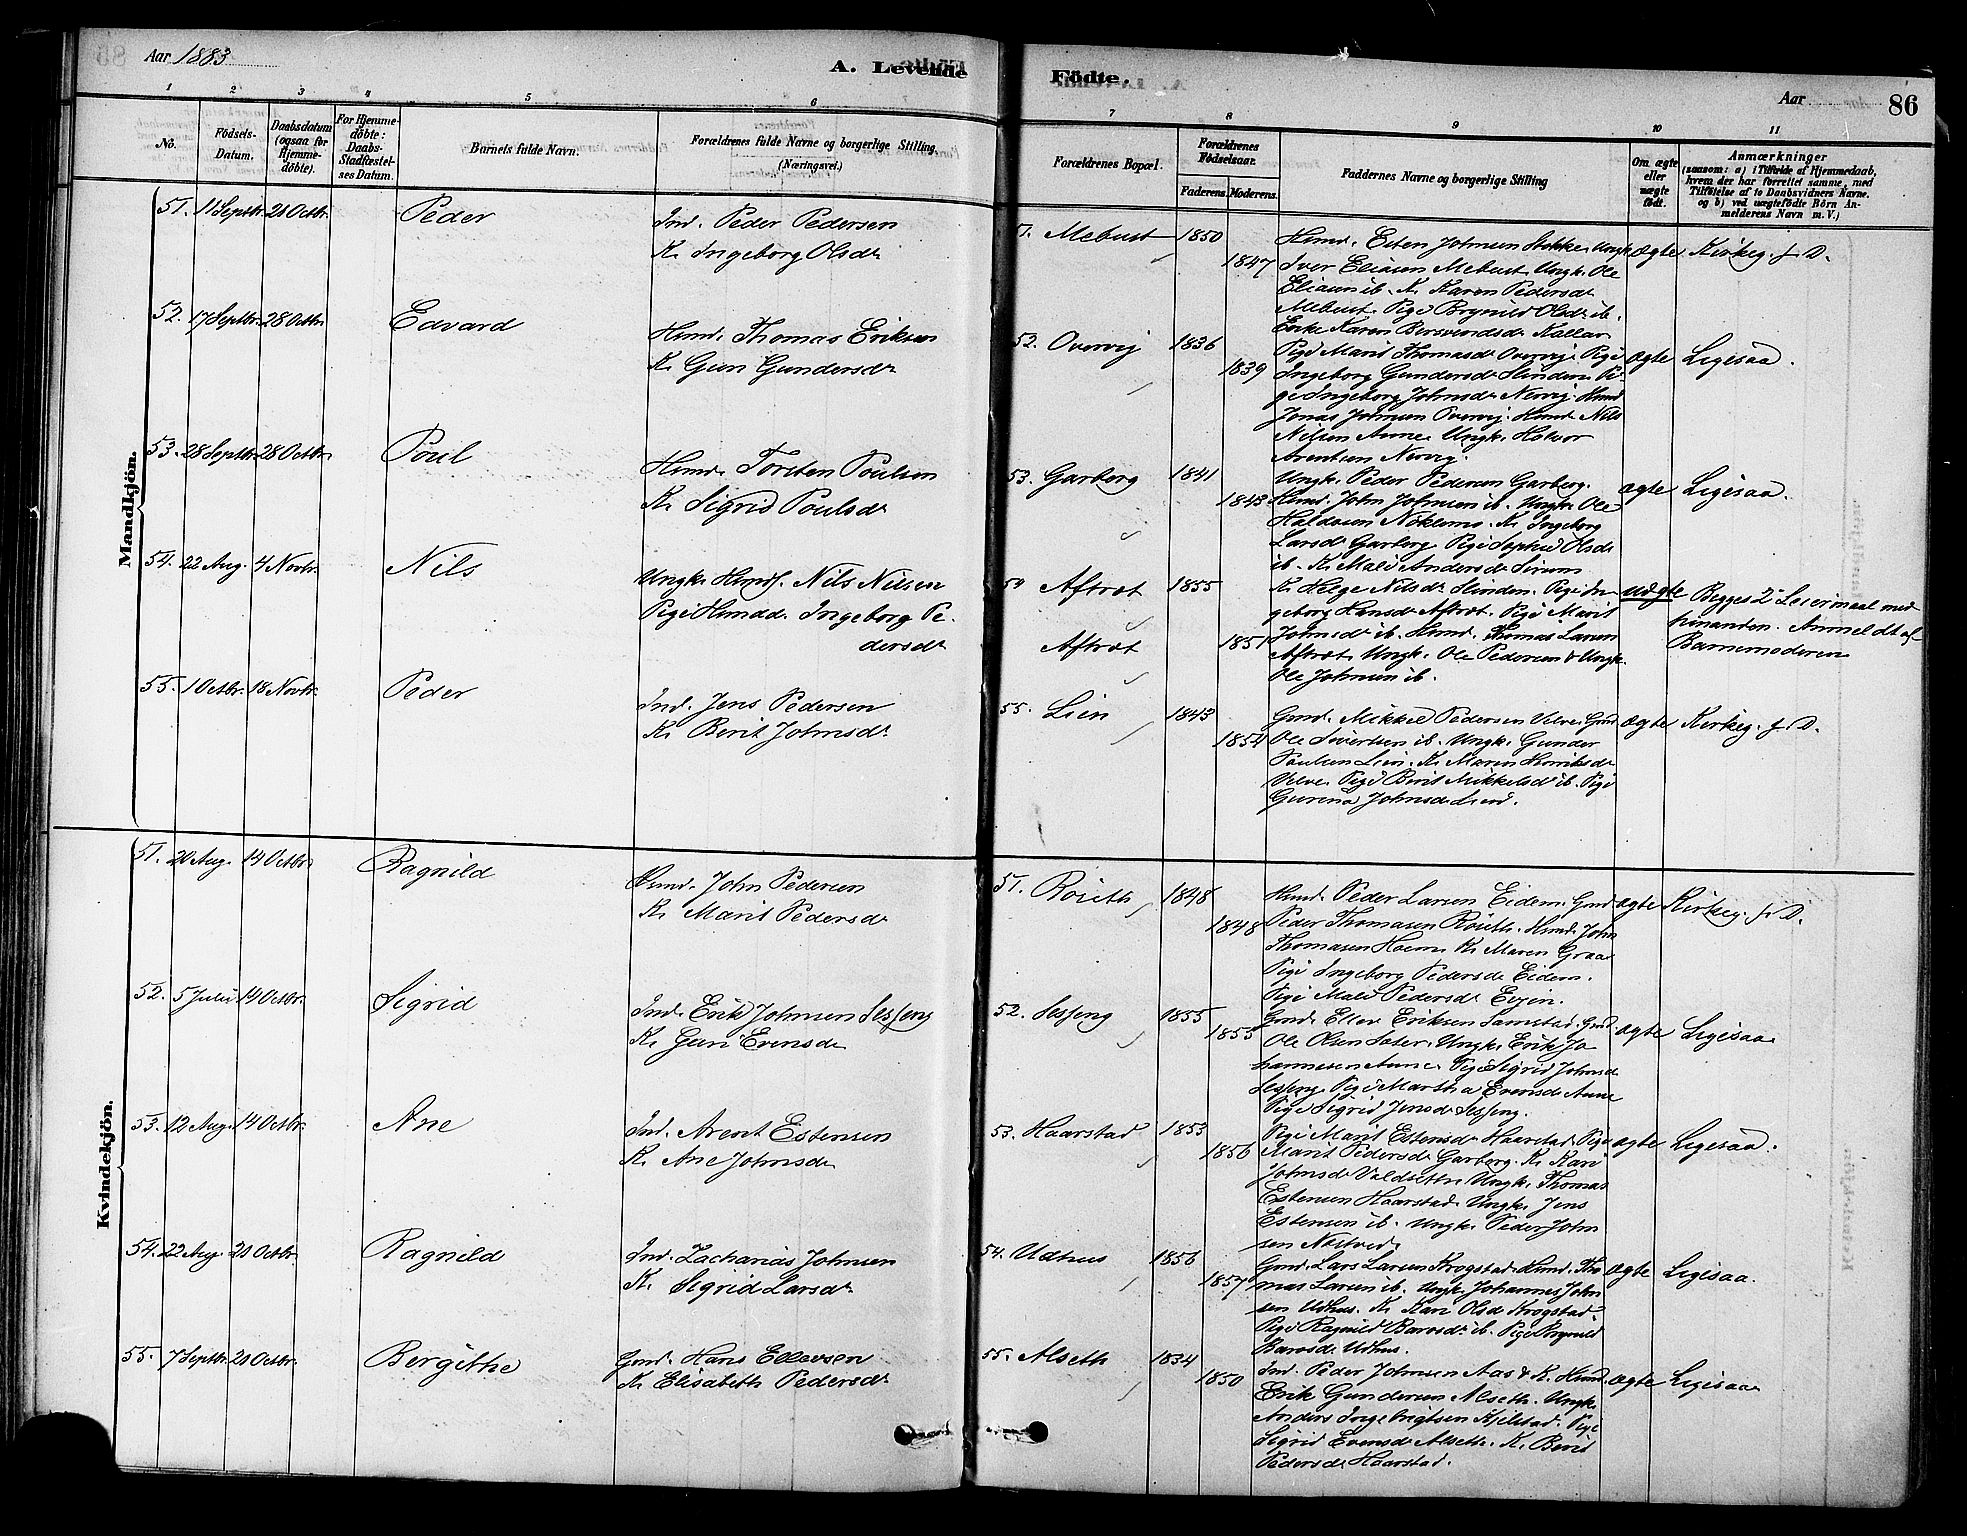 Aar 1883
A. Levende
Födte.
Aar
86
1 2 3 4 5 6
7 8 9 10 11
No.
Födsels-
Datum.
Daabsdatum
(ogsaa for
Hjemme-
döbte).
For Hjemme-
döbte:
Daabs-
Stadfæstel-
ses Datum.
Barnets fulde Navn.
Forældrenes fulde Navne og borgerlige Stilling.
(Næringsvei.)
Forældrenes Bopæl.
Forældrenes
Födselsaar.
Faderens. Moderens.
Faddernes Navne og borgerlige Stilling
Om ægte
eller
uægte
födt.
Anmærkninger
(saasom: a) i Tilfælde af Hjemmedaab,
hvem der har forrettet samme, med
Tilföielse af to Daabsvidners Navne.
og b) ved uægtefödte Börn An-
melderens Navn m. V.)
Mandkjön.
51. 11 Septbr. 21 Octbr. Peder
Ind. Peder Pedersen
K. Ingeborg Olsdr
51. Mebust 1850
1847
Husmd. Esten Johnsen Stokke. Ungk.
Iver Eliasen Mebust. Ungk. Ole
Eliasen ib. K. Karen Pedersdr
Mebust. Pige Brynild Olsdr ib.
Enke Karen Bersvendsdr Kallar
ægte Kirkeg. f. D.
52. 17 Septbr. 28 Octbr. Edvard
Husmd. Thomas Eriksen
K. Guri Gundersdr
52. Overvig 1836
1839
Pige Marit Thomasdr Overvig. Pige
Ingeborg Gundersdr Slinden. Pi-
ge Ingeborg Johnsdr Nervig. Husmd
Jonas Johnsen Overvig. Husmd. Nils
Nilsen Aune. Ungk. Halvor
Arentsen Nervig.
ægte Ligesaa.
53. 28 Septbr. 28 Octbr. Poul
Husmd. Torsten Poulsen
K. Sigrid Poulsdr
53. Garberg 1841
1843
Ungk. Peder Pedersen Garberg.
Husmd. John Johnsen ib. Ungk. Ole
Haldosen Nöklemo. K. Ingeborg
Larsdr Garberg. Pige Sophie Olsdr
ib. K. Mali Andersdr
ægte Ligesaa.
54. 22 Aug. 4 Novbr. Nils
Ungk. Husmds. Nils Nilsen
Pige Husmdd. Ingeborg Pe-
dersdr
54 Aftret 1855
Aftret 1851
K. Helge Nilsdr Slinden. Pige In-
geborg Hansdr Aftret. Pige Marit
Johnsdr ib. Husmd. Thomas Larsen
Aftret. Ungk. Ole Pedersen & Ungk.
Ole Johnsen ib.
uægte Begges 2det Leiermaal med
hinanden. Anmeldt af
Barnemoderen
55. 1 Octbr. 18 Novbr. Peder
Ind. Jens Pedersen
K. Berit Johnsdr
55. Lien 1843
1854
Gmd. Mikkel Pedersen Velve. Gmd.
Ole Sivertsen ib. Ungk. Gunder
Poulsen Lien. K. Maren Henriksdr
Velve. Pige Berit Mikkelsdr ib. Pige
Gurina Johnsdr Lien.
ægte Kirkeg. f. D.
Kvindekjön.
51. 20 Aug. 14 Octbr. Ragnild
Husmd. John Pedersen
K. Marit Pedersdr
51. Röseth 1848
1848
Husmd. Peder Larsen Eidem. Gmd
Peder Thomasen Röseth. Husmd. John
Thomasen Hoem. K. Maren Graa
Pige Ingeborg Pedersdr Eidem.
Pige Mali Pedersdr Evjen.
ægte Kirkeg. f. D.
52. 5 Juli 14 Octbr. Sigrid
Ind. Erik Johnsen Sesseng
K. Guri Evensdr
52. Sesseng 1855
1855
Gmd. Ellev Eriksen Samstad. Gmd
Ole Olsen Sæter. Ungk. Erik Jo
hannesen Aune. Pige Sigrid Johnsdr
Sesseng. Pige Martha Evensdr Aune
Pige Sigrid Jensdr Sesseng.
ægte Ligesaa
53. 12 Aug. 14 Octbr. Ane
Ind. Arent Estensen
K. Ane Johnsdr
53. Haarstad 1853
1856
Pige Marit Estensdr Haarstad. Pige
Marit Pedersdr Garberg. K. Kari
Johnsdr Valdsetbr Ungk. Thomas
Estensen Haarstad. Ungk. Jens
Estensen ib. Ungk. Peder John
sen Nöstved.
ægte Ligesaa.
54. 22 Aug. 21 Octbr. Ragnild
Ind. Zacharias Johnsen
K. Sigrid Larsdr
54. Udhus 1856
1857
Gmd. Lars Larsen Krogstad. Husmd. Tho
mas Larsen ib. Ungk. Johannes John
sen Udhus. K. Kari Olsdr Krogstad.
Pige Ragnild Baroesdr ib. Pige Brynild
Baroesdr Udhus.
ægte Ligesaa.
55. 7 Septbr. 21 Octbr. Bergithe
Gmd. Hans Ellevsen
K. Elisabeth Pedersdr
55. Alseth 1834
1850
Ind. Peder Johnsen Aas & K. Husmd.
Erik Gundersen Alseth. Ungk.
Anders Ingebrigtsen Kjelstad. Pige
Sigrid Evensdr Alseth. K. Berit
Pedersdr Haarstad.
ægte Ligesaa